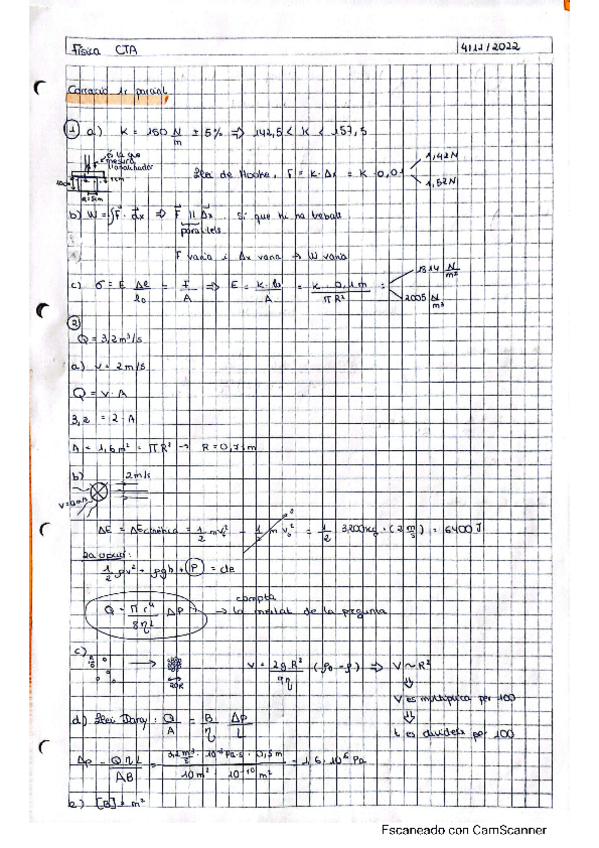 Física CTA 4/11/2022
Correcció 1r parcial
1 a) K = 150 N/m ± 5% ⇒ 142,5 < K < 157,5
Llei de Hooke, F = K·Δx = K·0,01
1,42N
1,52N
b) W = ∫F·dx ⇒ F || Δx Sí que hi ha treball
paral·lels
F varia i Δx varia → W varia
c) σ = E Δl/l₀ = F/A ⇒ E = K·l₀/A = K·0,1m/πR² =
1814 N/m²
2005 N/m³
2
Q = 3,2m³/s
a) v = 2m/s
Q = v·A
3,2 = 2·A
A = 1,6m² = πR² → R = 0,71m
b) 2m/s
ΔE = ΔEcinètica = 1/2 mv² - 1/2 m v₀² = 1/2 3200kg · (2 m/s) = 6400J
2a opció:
1/2 ρv² + ρgh + P = cte
compta
Q = πr⁴/8ηL ΔP → la meitat de la pregunta
c) V = 2gR²/9η (ρ₀-ρ) ⇒ V ~ R²
20R
V es multiplica per 100
t es divideix per 100
d) Llei Darcy: Q/A = B/η ΔP/L
Δp = QηL/AB = 3,2 m³/s · 10⁻³ Pa·s · 0,5m / 10m² · 10⁻¹⁰m² = 1,6·10⁶ Pa
e) [B] = m²
Escaneado con CamScanner